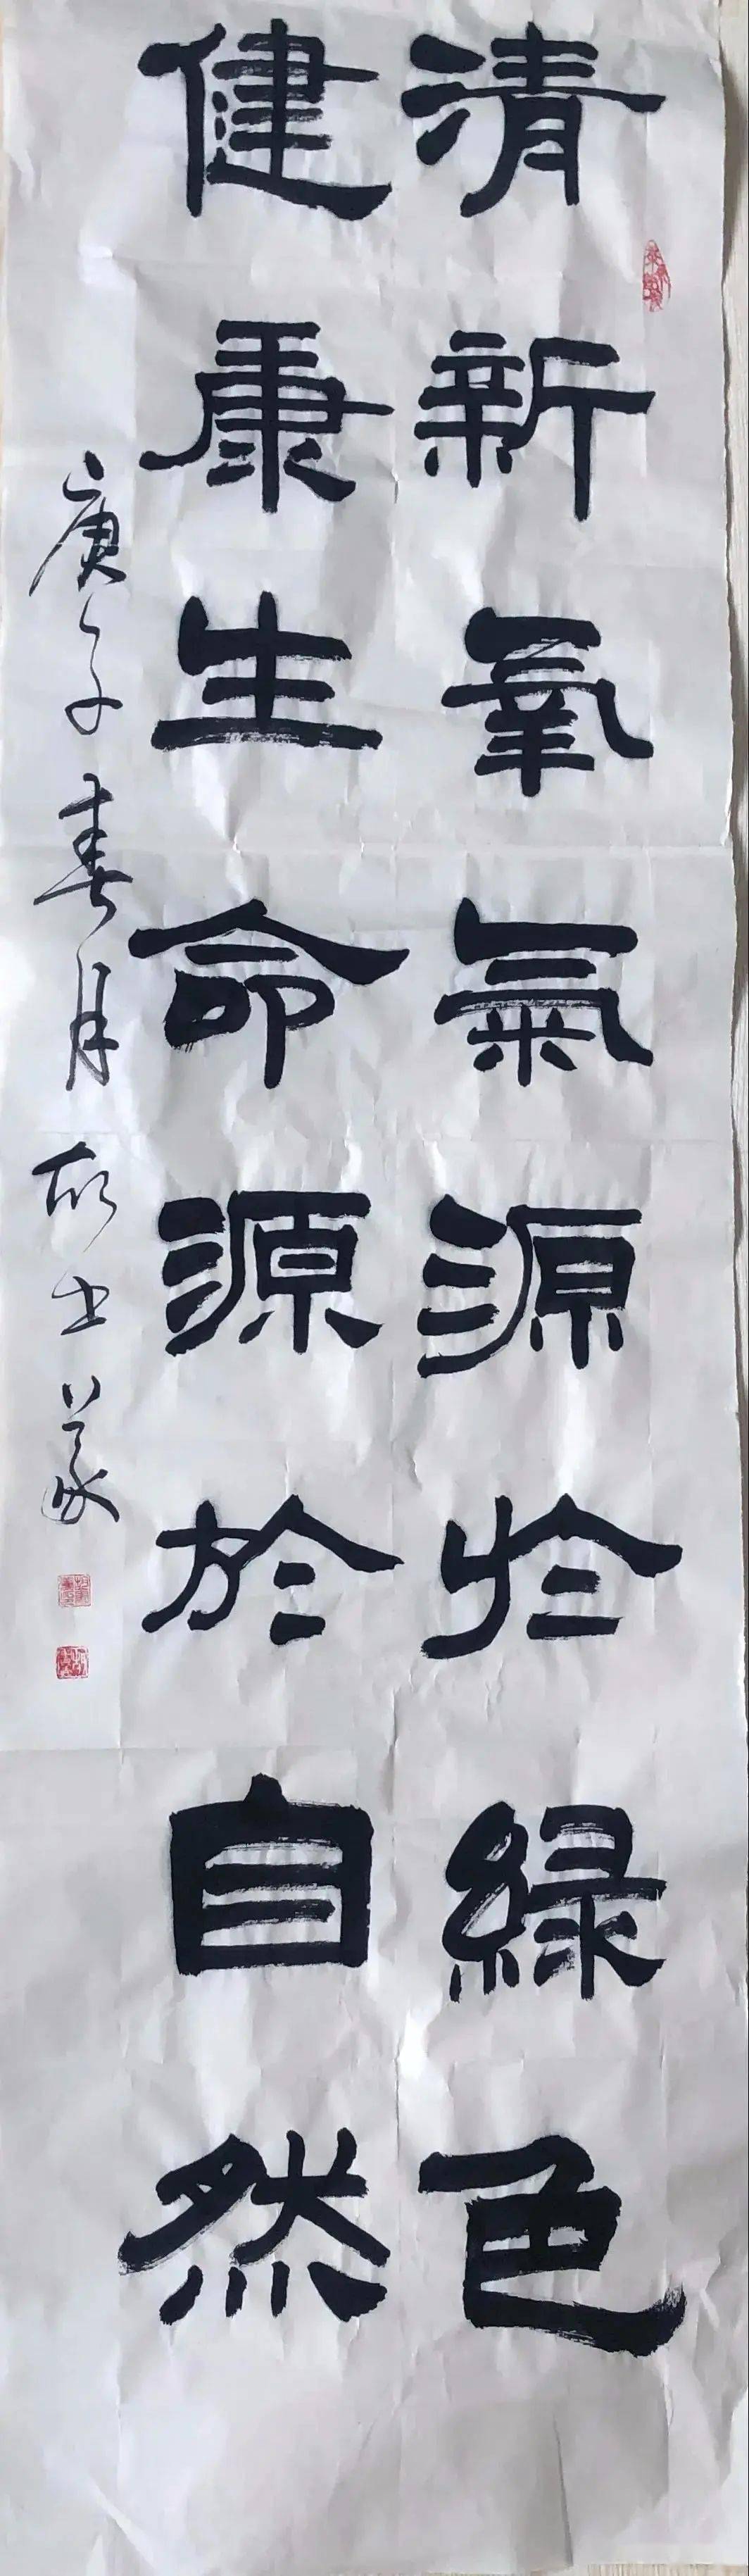 清新氧氣源於緑色
健康生命源於自然
庚子春月